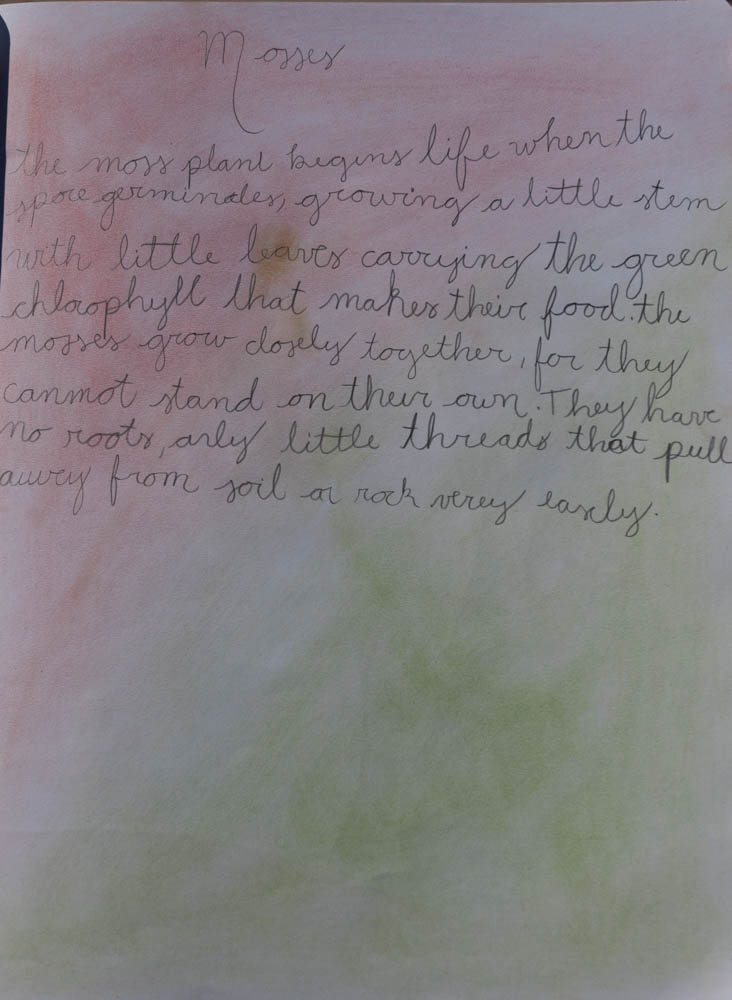 Mosses
the moss plant begins life when the
spore germinates, growing a little stem
with little leaves carrying the green
chloophyll that makes their food. the
mosses grow closely together, for they
canmot stand on their own. They have
no roots, only little threads that pull
away from soil or rock verey easely.